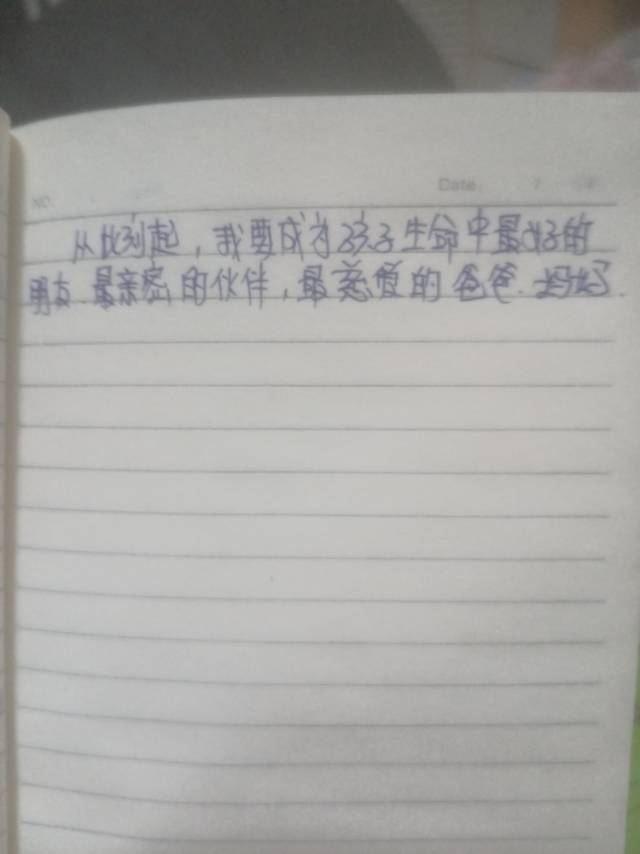 NO.
Date
从此刻起，我要成为孩子生命中最好的
朋友.最亲密的伙伴，最慈爱的爸爸.妈妈.